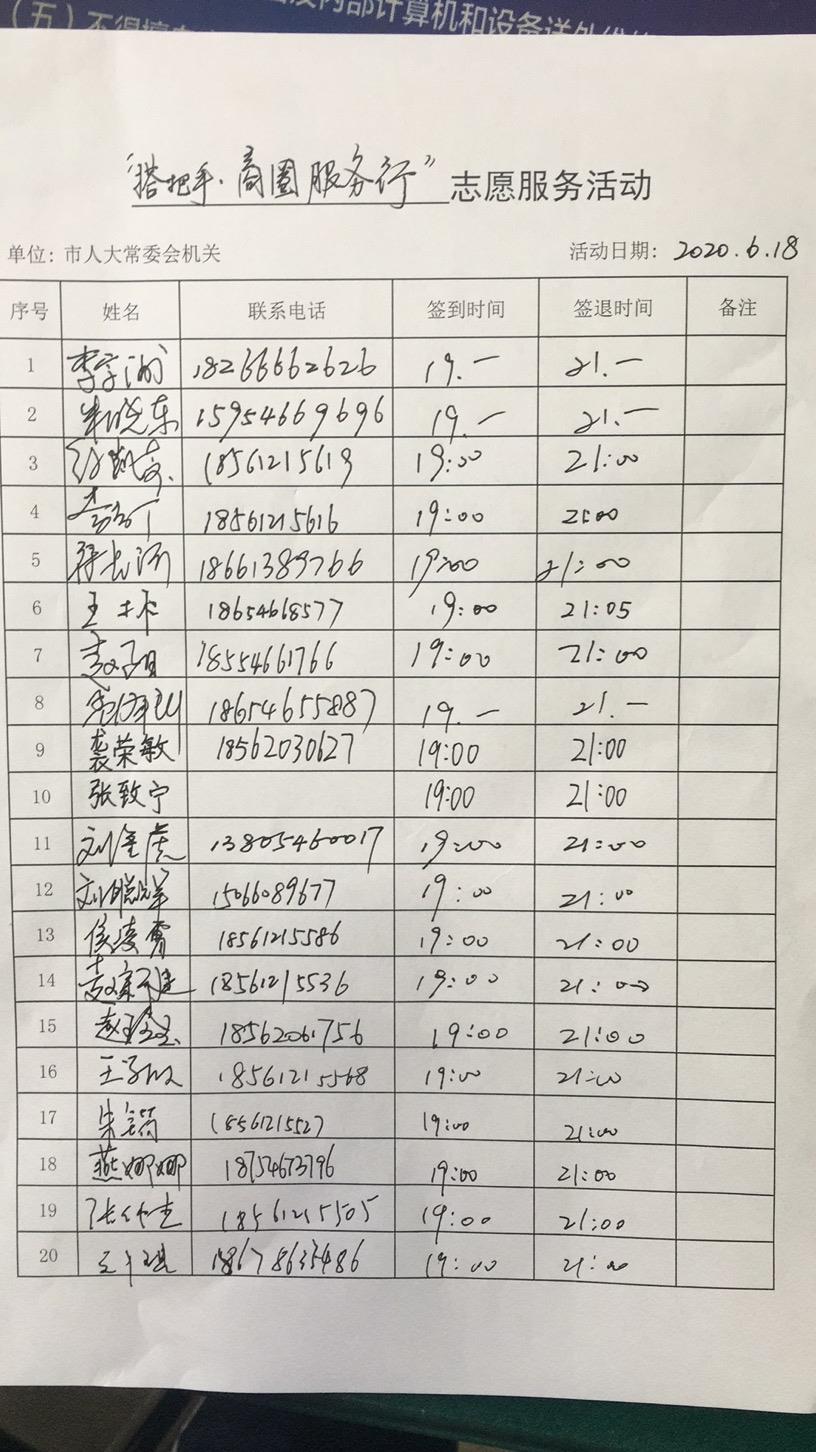 (五)不得擅
内部计算机和设备送外维
“搭把手·商圈服务行”志愿服务活动
单位：市人大常委会机关 活动日期：2020.6.18
序号 姓名 联系电话 签到时间 签退时间 备注
1 18266662626 19.一 21.一
2 朱晓东 15954669696 19.一 21.一
3 18561215619 19:00 21:00
4 18561215616 19:00 21:00
5 18661389766 19:00 21:00
6 王林 18654668577 19:00 21:05
7 18554661766 19:00 21:00
8 18654655887 19.一 21.一
9 裴荣敏 18562030627 19:00 21:00
10 张致宁 19:00 21:00
11 刘金虎 13805460017 19:00 21:00
12 15066089677 19:00 21:00
13 侯凌霄 18561215586 19:00 21:00
14 18561215536 19:00 21:00
15 18562061756 19:00 21:00
16 18561215568 19:00 21:00
17 18561215527 19:00 21:00
18 燕娜娜 18754673796 19:00 21:00
19 18561215505 19:00 21:00
20 19:00 21:00